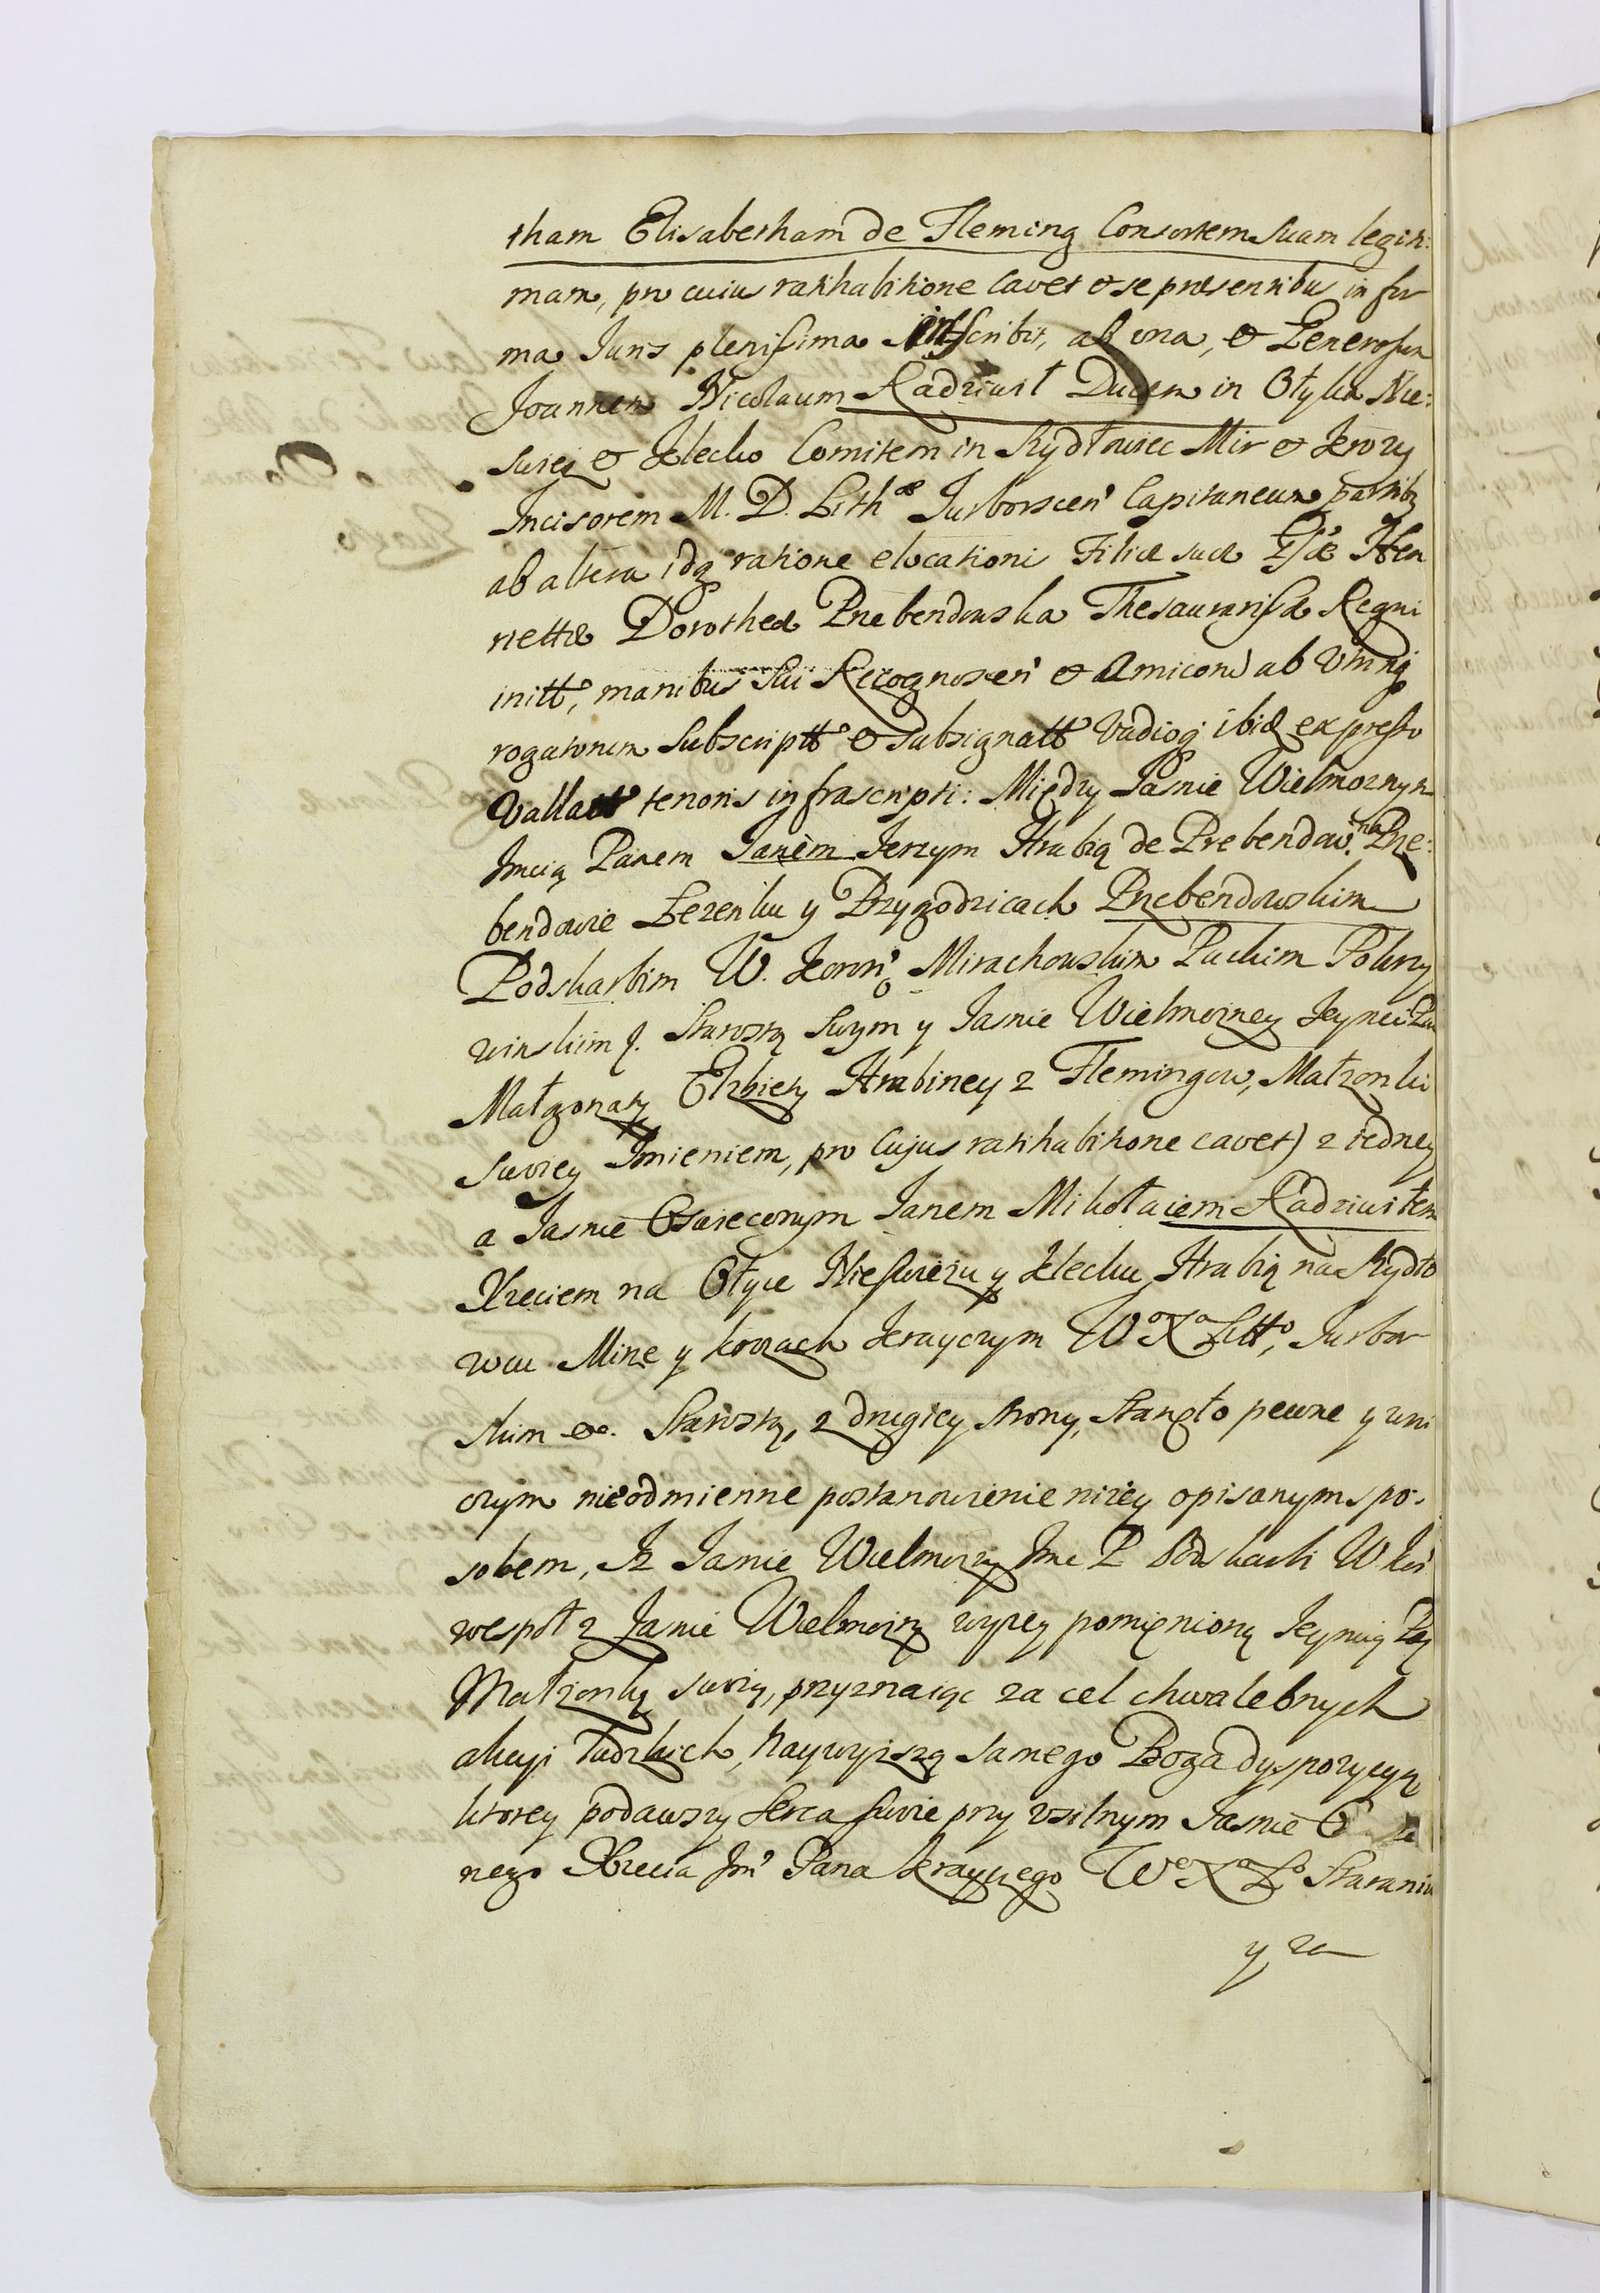 tham Elisabetham de Fleming Consortem Suam legiti:
mam, pro cuius ratihabitione cavet et se præsentibus in for
ma Juris plenissima inscribit, ab una, et Generosum
Joannem Nicolaum Radziwił Ducem in Ołyka Nie:
swież et Klecko Comitem in Szydłowiec Mir et Krozy
Incisorem M. D. Lithæ Jurborscen' Capitaneum partibq
ab altera idq ratione elocationis Filiæ suæ Hen
riettæ Dorotheæ Przebendowska Thesaurarissæ Regni
initt, manibus Sui Recognoscen' et Amicorum ab Utrinq
rogatorum Subscriptt et subsignatt Vadioq ibid expresso
Vallatt tenoris infrascripti: Między Jasnie Wielmoznym
Jmcią Panem Janem Jerzym Hrabią de Prebendow. na Prze:
bendowie Lezenku y Przygodzicach Przebendowskim
Podskarbim W. Koron' Mirachowskim Puckim Pokrzy
winskim Starostą Swym y Jasnie Wielmozney Jeymci
Małgorzaty Elzbiety Hrabiney z Flemingow, Małzonki
Swoiey Imieniem, pro Cujus ratihabitione cavet) z iedney
a Jasnie Oswieconym Janem Mikołaiem Radziwiłem
Xzeciem na Ołyce Nieswiezu y Klecku, Hrabią na Szydło
wcu Mirze y krozach Krayczym Wo Xa Litto, Jurbor
skim etc. Starostą, z drugiey strony, Stanęło pewne y wni
czym nieodmienne postanowienie nizey opisanym spo:
sobem, Iz Jasnie Wielmozny Jmc P Podskarbi W. Kor'
wespoł z Jasnie Wielmozną wyzey pomienioną Jeymcią
Małzonką swoią, przyznaiąc za cel chwalebnych
akcyi ludzkich, Naywyzszą samego Boga dyspozycyą
ktorey podawszy Serca swoie przy usilnym Jasnie
nego Xzecia Jm' Pana Krayczego We Xa Lo Staraniu
y za